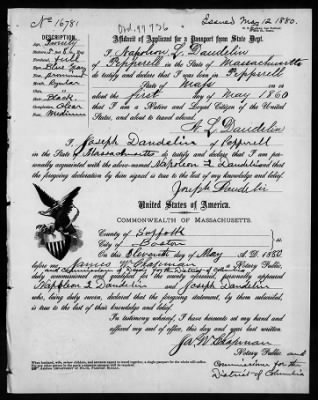 No 16781
Ord. 97736
Issued May 12 1880.
DESCRIPTION.
Affidavit of Applicant for a Passport from State Dept.
I, Napoleon L. Daudelin
of Pepperell in the State of Massachusetts
do testify and declare that I was born in Pepperell
State of Mass
about the first day of May 1860
that I am a Native and Loyal Citizen of the United States,
and about to travel abroad.
N. L. Daudelin
Twenty
5 ft
full
Blue Gray
Regular
Black
Clear
Medium
I, Joseph Daudelin of Pepperell
in the State of Massachusetts do testify and declare that I am personally
acquainted with the above-named Napoleon L Daudelin and that
the foregoing declaration by him signed is true to the best of my knowledge and belief.
Joseph Daudelin
United States of America.
COMMONWEALTH OF MASSACHUSETTS.
County of Suffolk
City of Boston
On this Eleventh day of May A. D. 1880
before me James W. Chapman a Notary Public,
and Commissioner of Deeds for the District of Columbia
duly commissioned and for the county aforesaid, personally appeared
Napoleon L Daudelin and Joseph Daudelin
who, being duly sworn, declared that the foregoing statement, by them subscribed,
is true to the best of their knowledge and belief.
In testimony whereof, I have hereunto set my hand and
affixed my seal of office, this day and year last written.
Ja. W. Chapman
Notary Public and
Commissioner for the
District of Columbia
When husband, wife, minor children, and servants expect to travel together, a single passport for the whole will suffice.